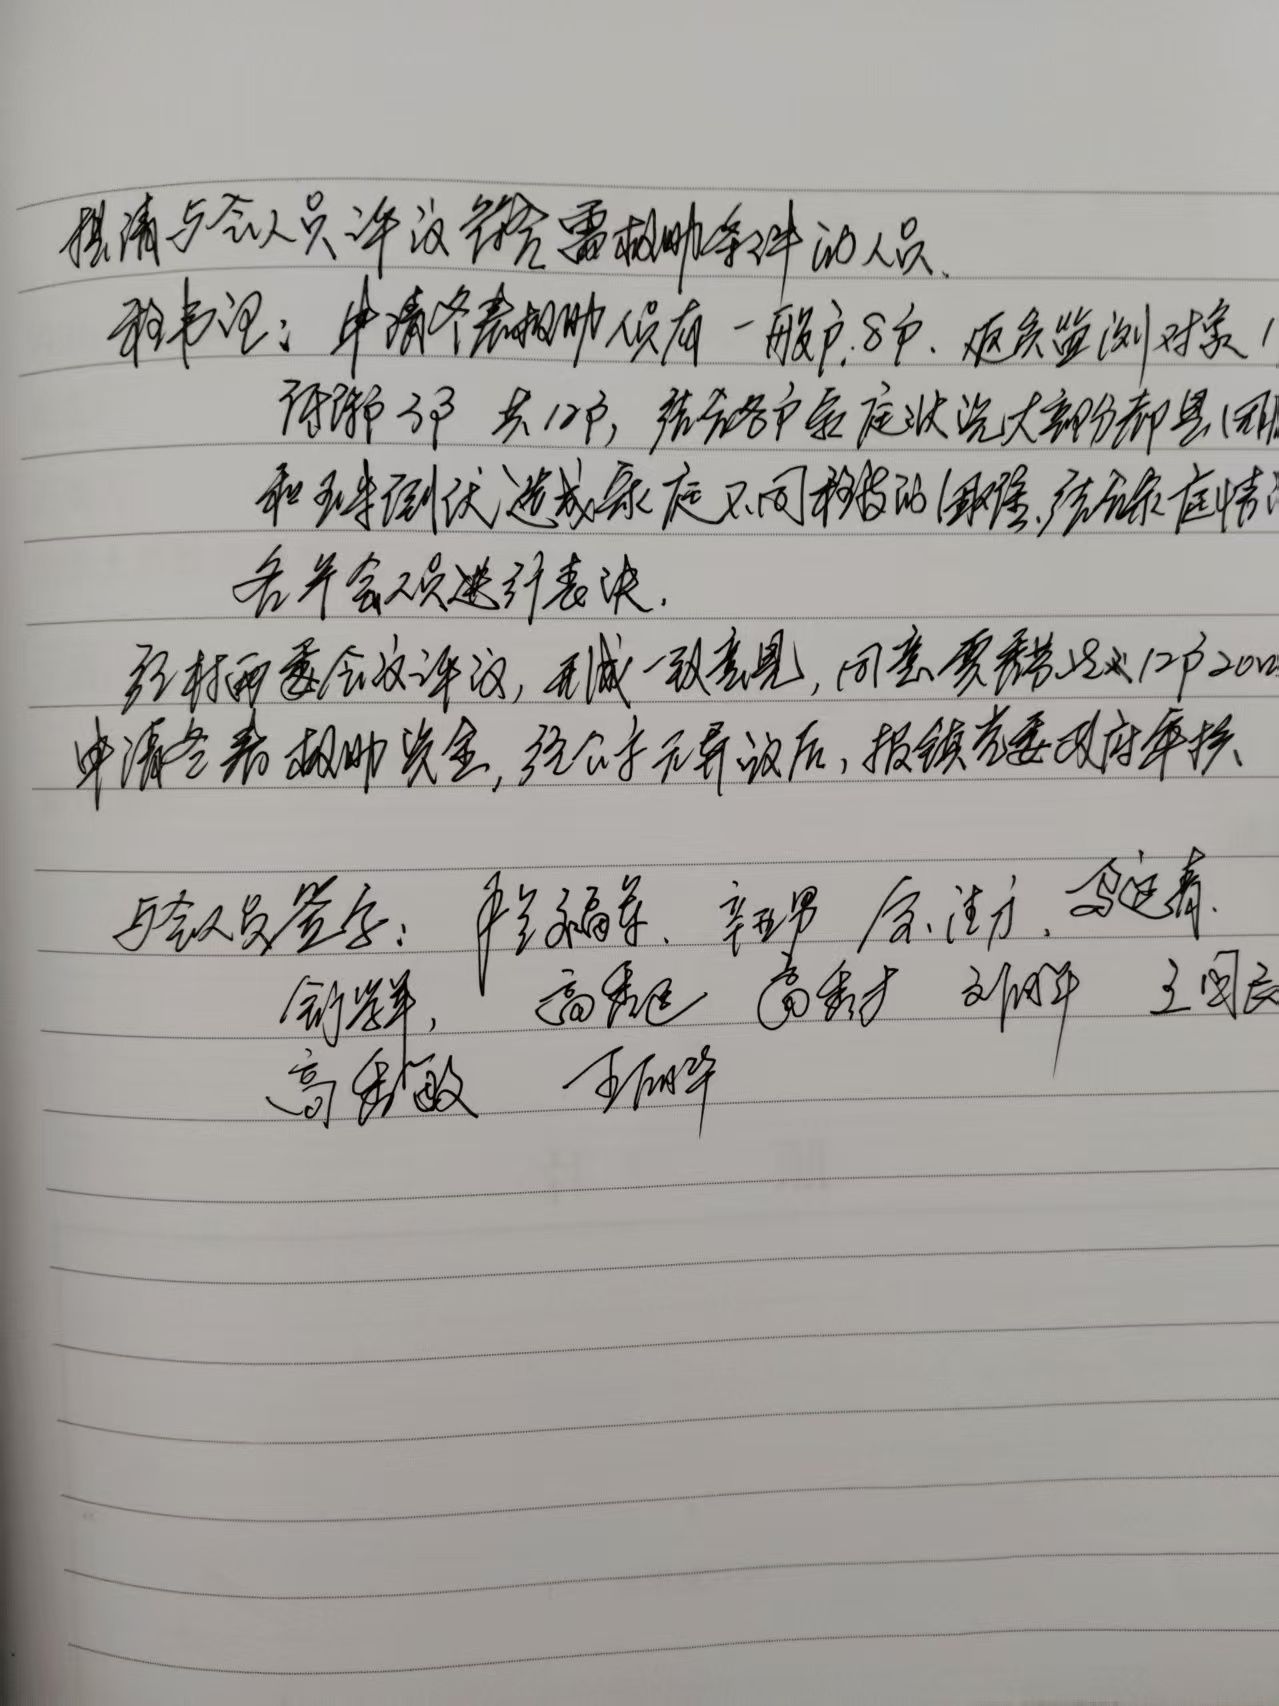 提请与会人员评议符合需救助条件的人员、
程书记：申请冬春救助人员有一般户8户、返贫监测对象1
脱贫户3户 共12户，结合各户家庭状况大部分都是因
和玉米倒伏造成家庭不同程度的困难、结合家庭情
各与会人员进行表决.
经村两委会议评议，形成一致意见，同意贾 12户202
申请冬春救助资金，经公示无异议后，报镇党委政府审核、
与会人员签字： 福、辛 男 方、冯 青.
军， 高秀 高秀才 刘明军 王国
高秀敏 王明华